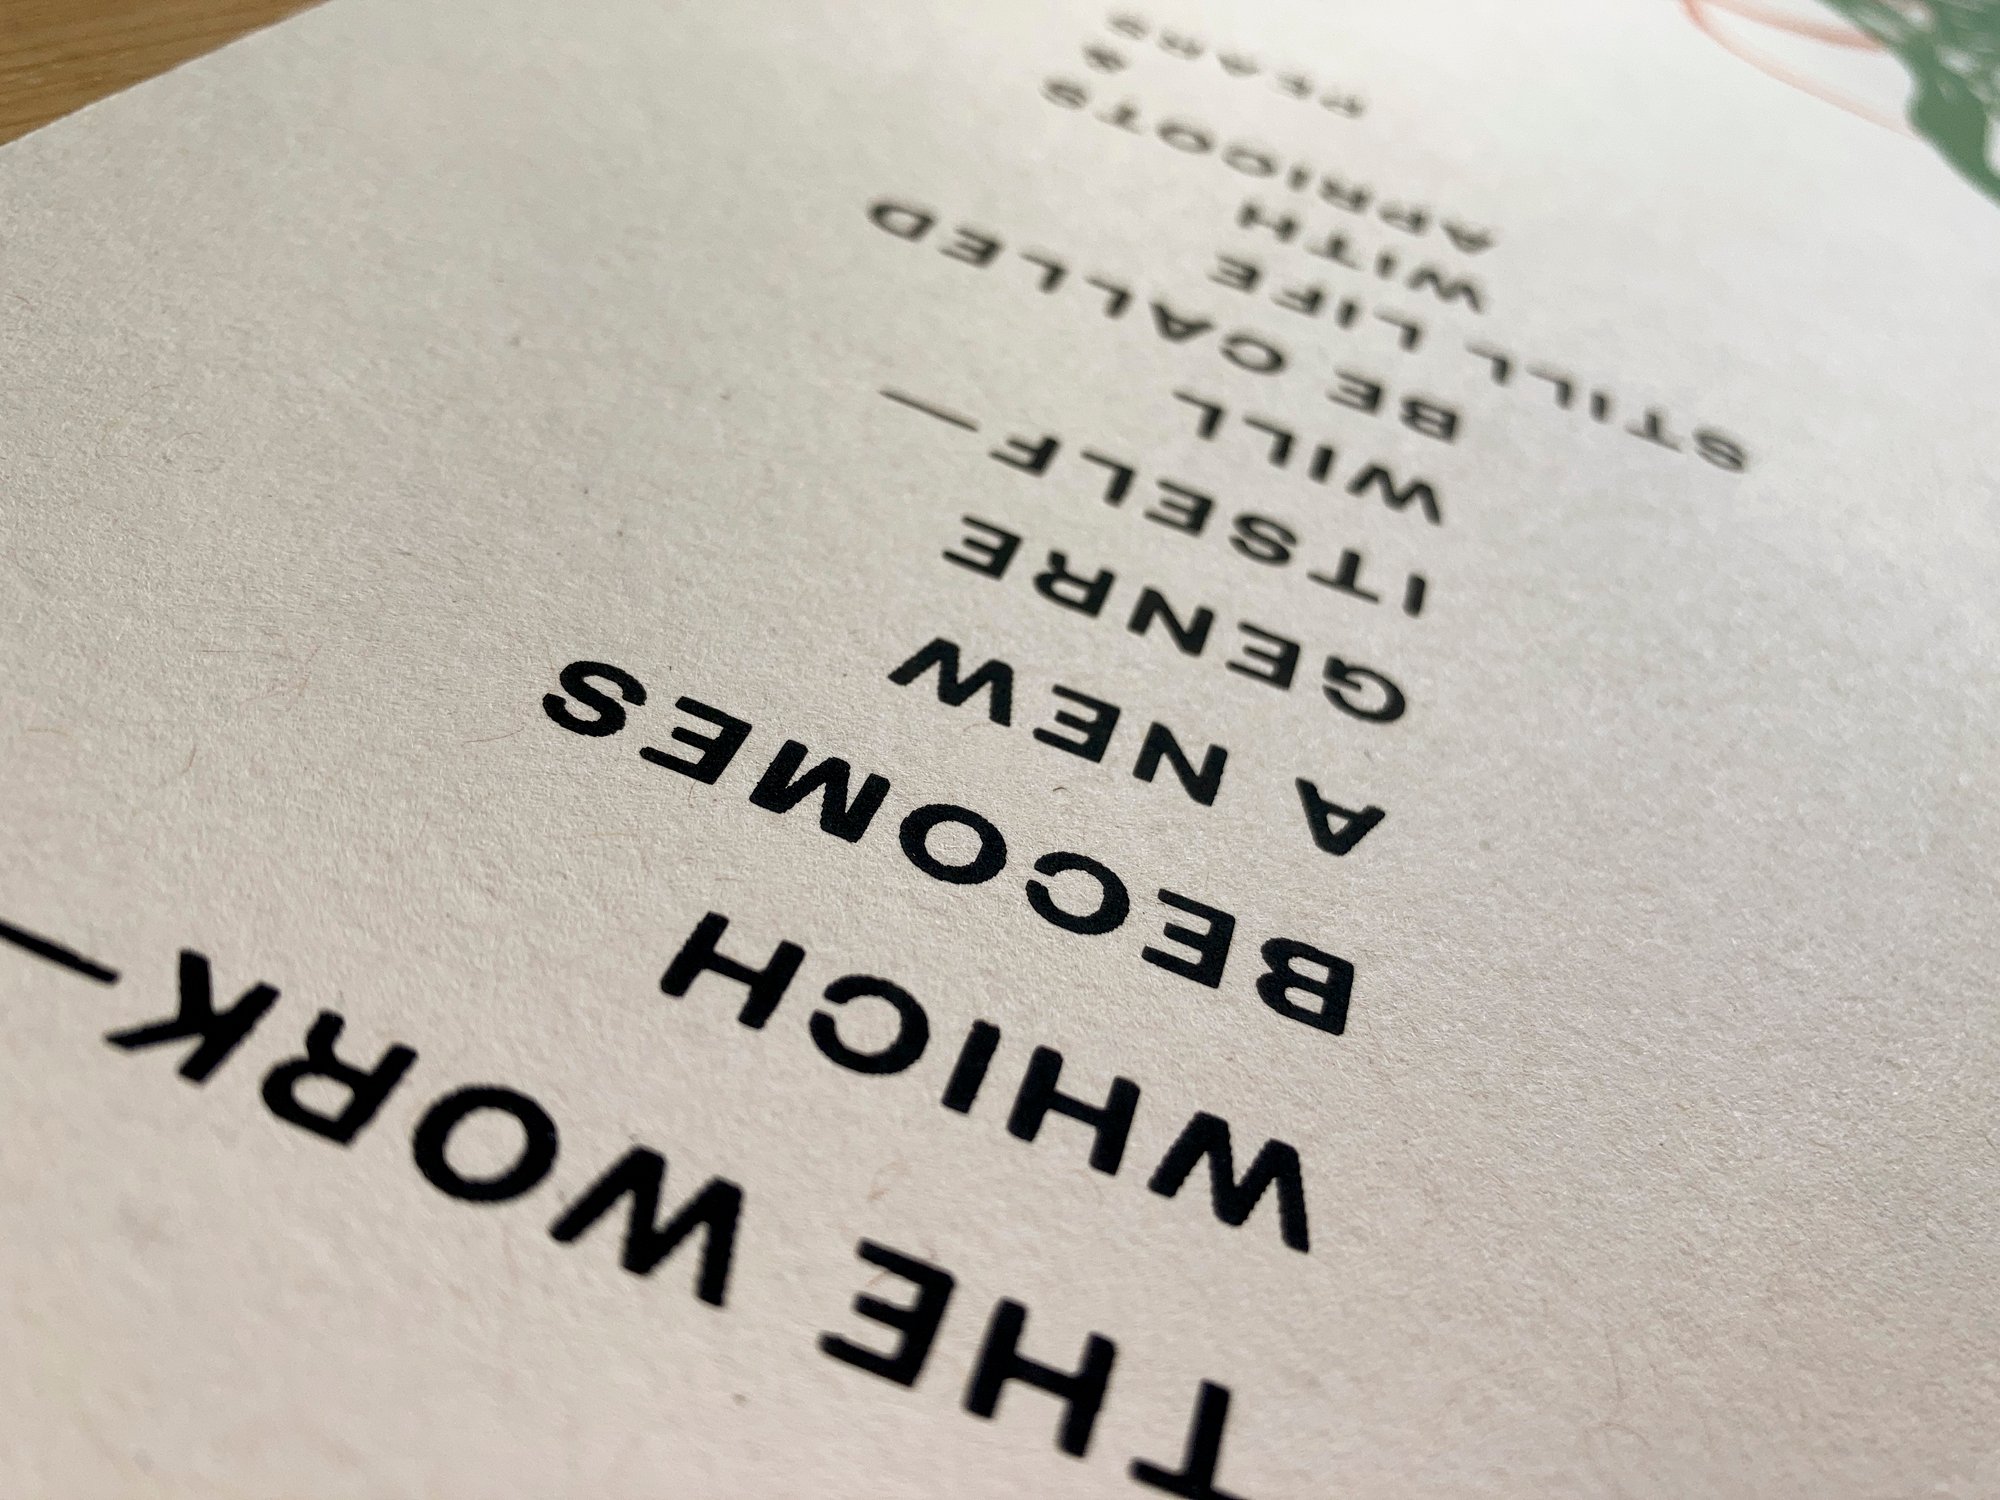 THE WORK—
WHICH
BECOMES
A NEW
GENRE
ITSELF—
WILL
BE CALLED
STILL LIFE
WITH
APRICOTS
&
PEARS